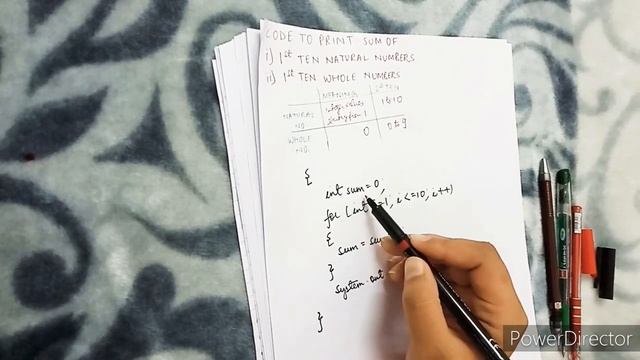 CODE TO PRINT SUM OF
i) 1st TEN NATURAL NUMBERS
ii) 1st TEN WHOLE NUMBERS
MEANING 1st TEN
NATURAL NO. 1 1 to 10
WHOLE NO. 0 0 to 9
{
int sum = 0;
for (int =1; i<=10; i++)
{
sum = su
}
System.out
}
PowerDirector